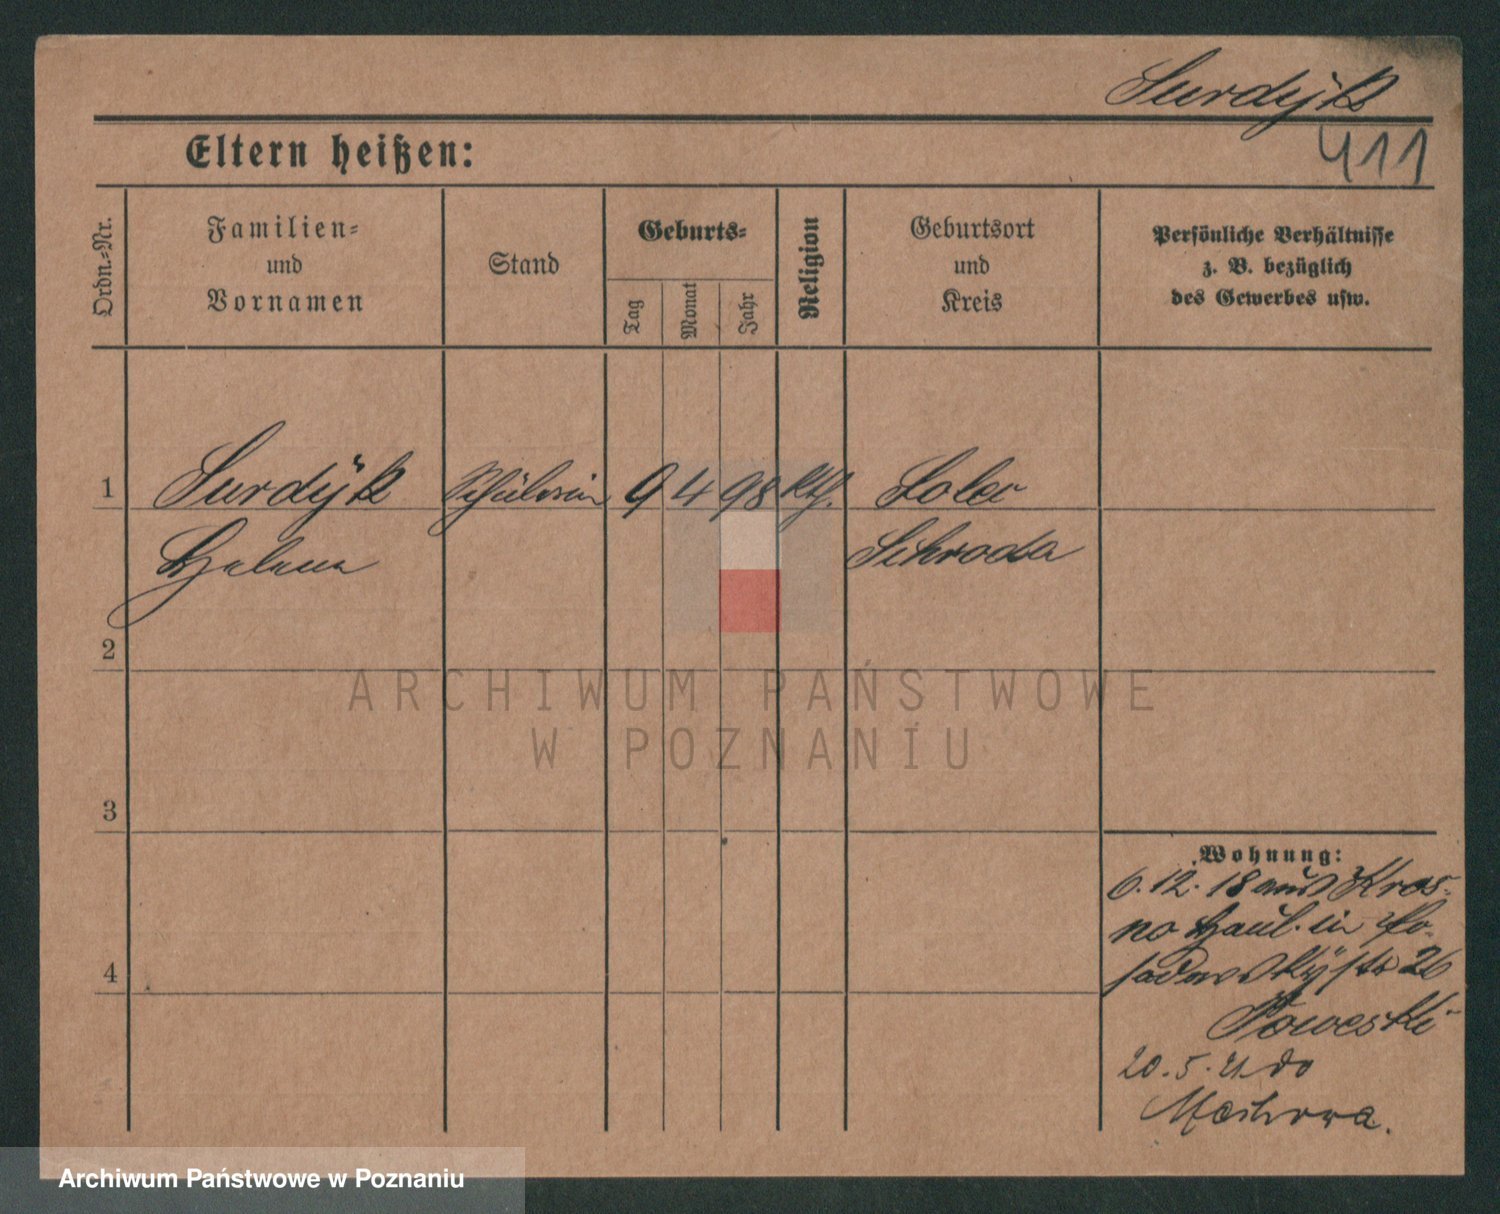 Surdyk
411
Eltern heißen:
Ordn.-Nr.
Familien-
und
Vornamen
Stand
Geburts-
Tag
Monat
Jahr
Religion
Geburtsort
und
Kreis
Persönliche Verhältnisse
z. B. bezüglich
des Gewerbes usw.
1 Surdyk Schülerin 9 4 98 kth. Solec
Helena Schroda
2
3
4
ARCHIWUM PAŃSTWOWE
W POZNANIU
Wohnung:
6.12.18 aus Kros-
no Haul. in Po-
sadowskystr 26
20.5.21 do
Archiwum Państwowe w Poznaniu